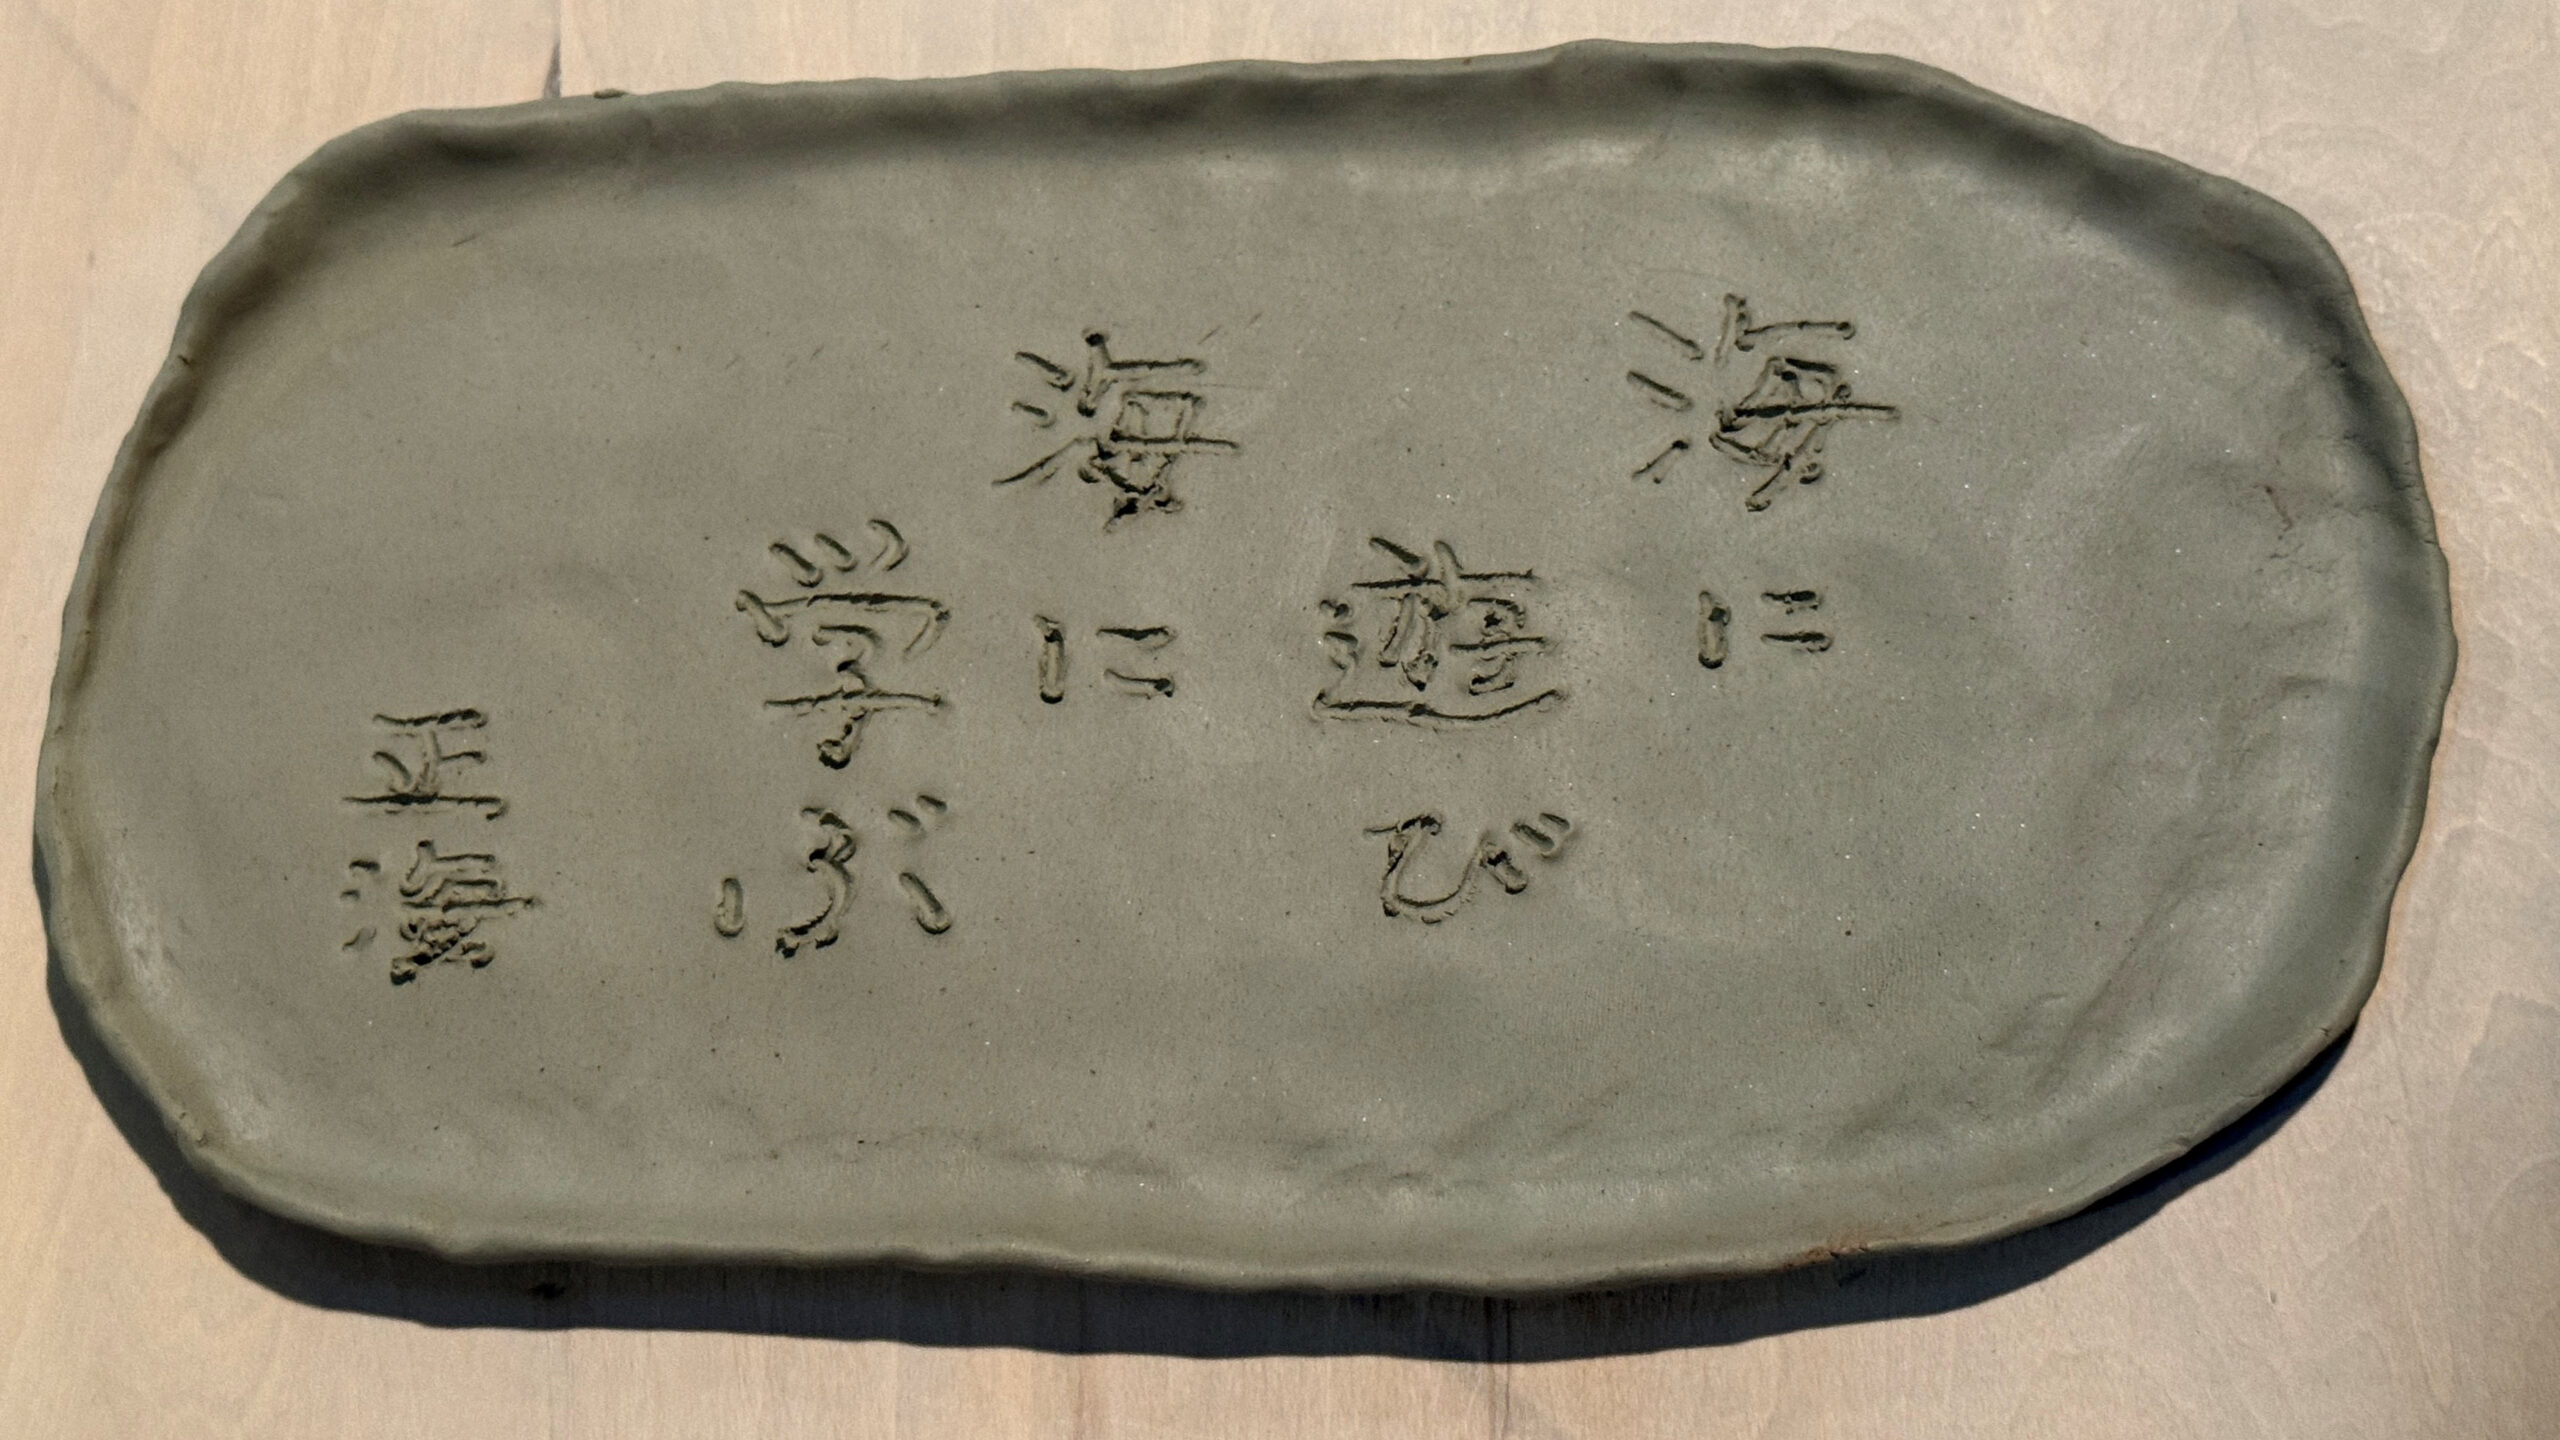 海に
遊び
海に
学ぶ
正海